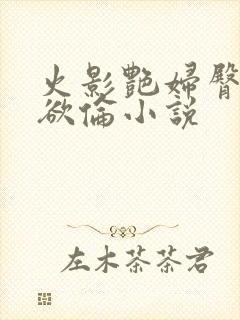 火影艷婦臀
欲倫小說
左木茶茶君